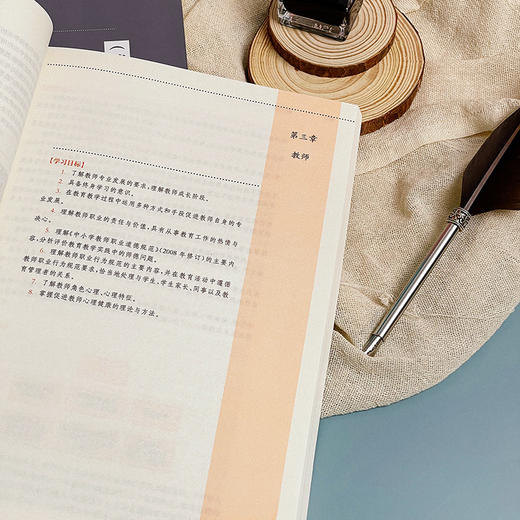 第三章
教师
【学习目标】
1. 了解教师专业发展的要求,理解教师成长阶段。
2. 具备终身学习的意识。
3. 在教育教学过程中运用多种方式和手段促进教师自身的专
业发展。
4. 理解教师职业的责任与价值,具有从事教育工作的热情与
决心。
5. 理解《中小学教师职业道德规范》(2008年修订)的主要内
容,分析评价教育教学实践中的师德问题。
6. 理解教师职业行为规范的主要内容,并在教育活动中遵循
教师职业行为规范要求,恰当地处理与学生、学生家长、同事以及教
育管理者的关系。
7. 了解教师角色心理、心理特征。
8. 掌握促进教师心理健康的理论与方法。